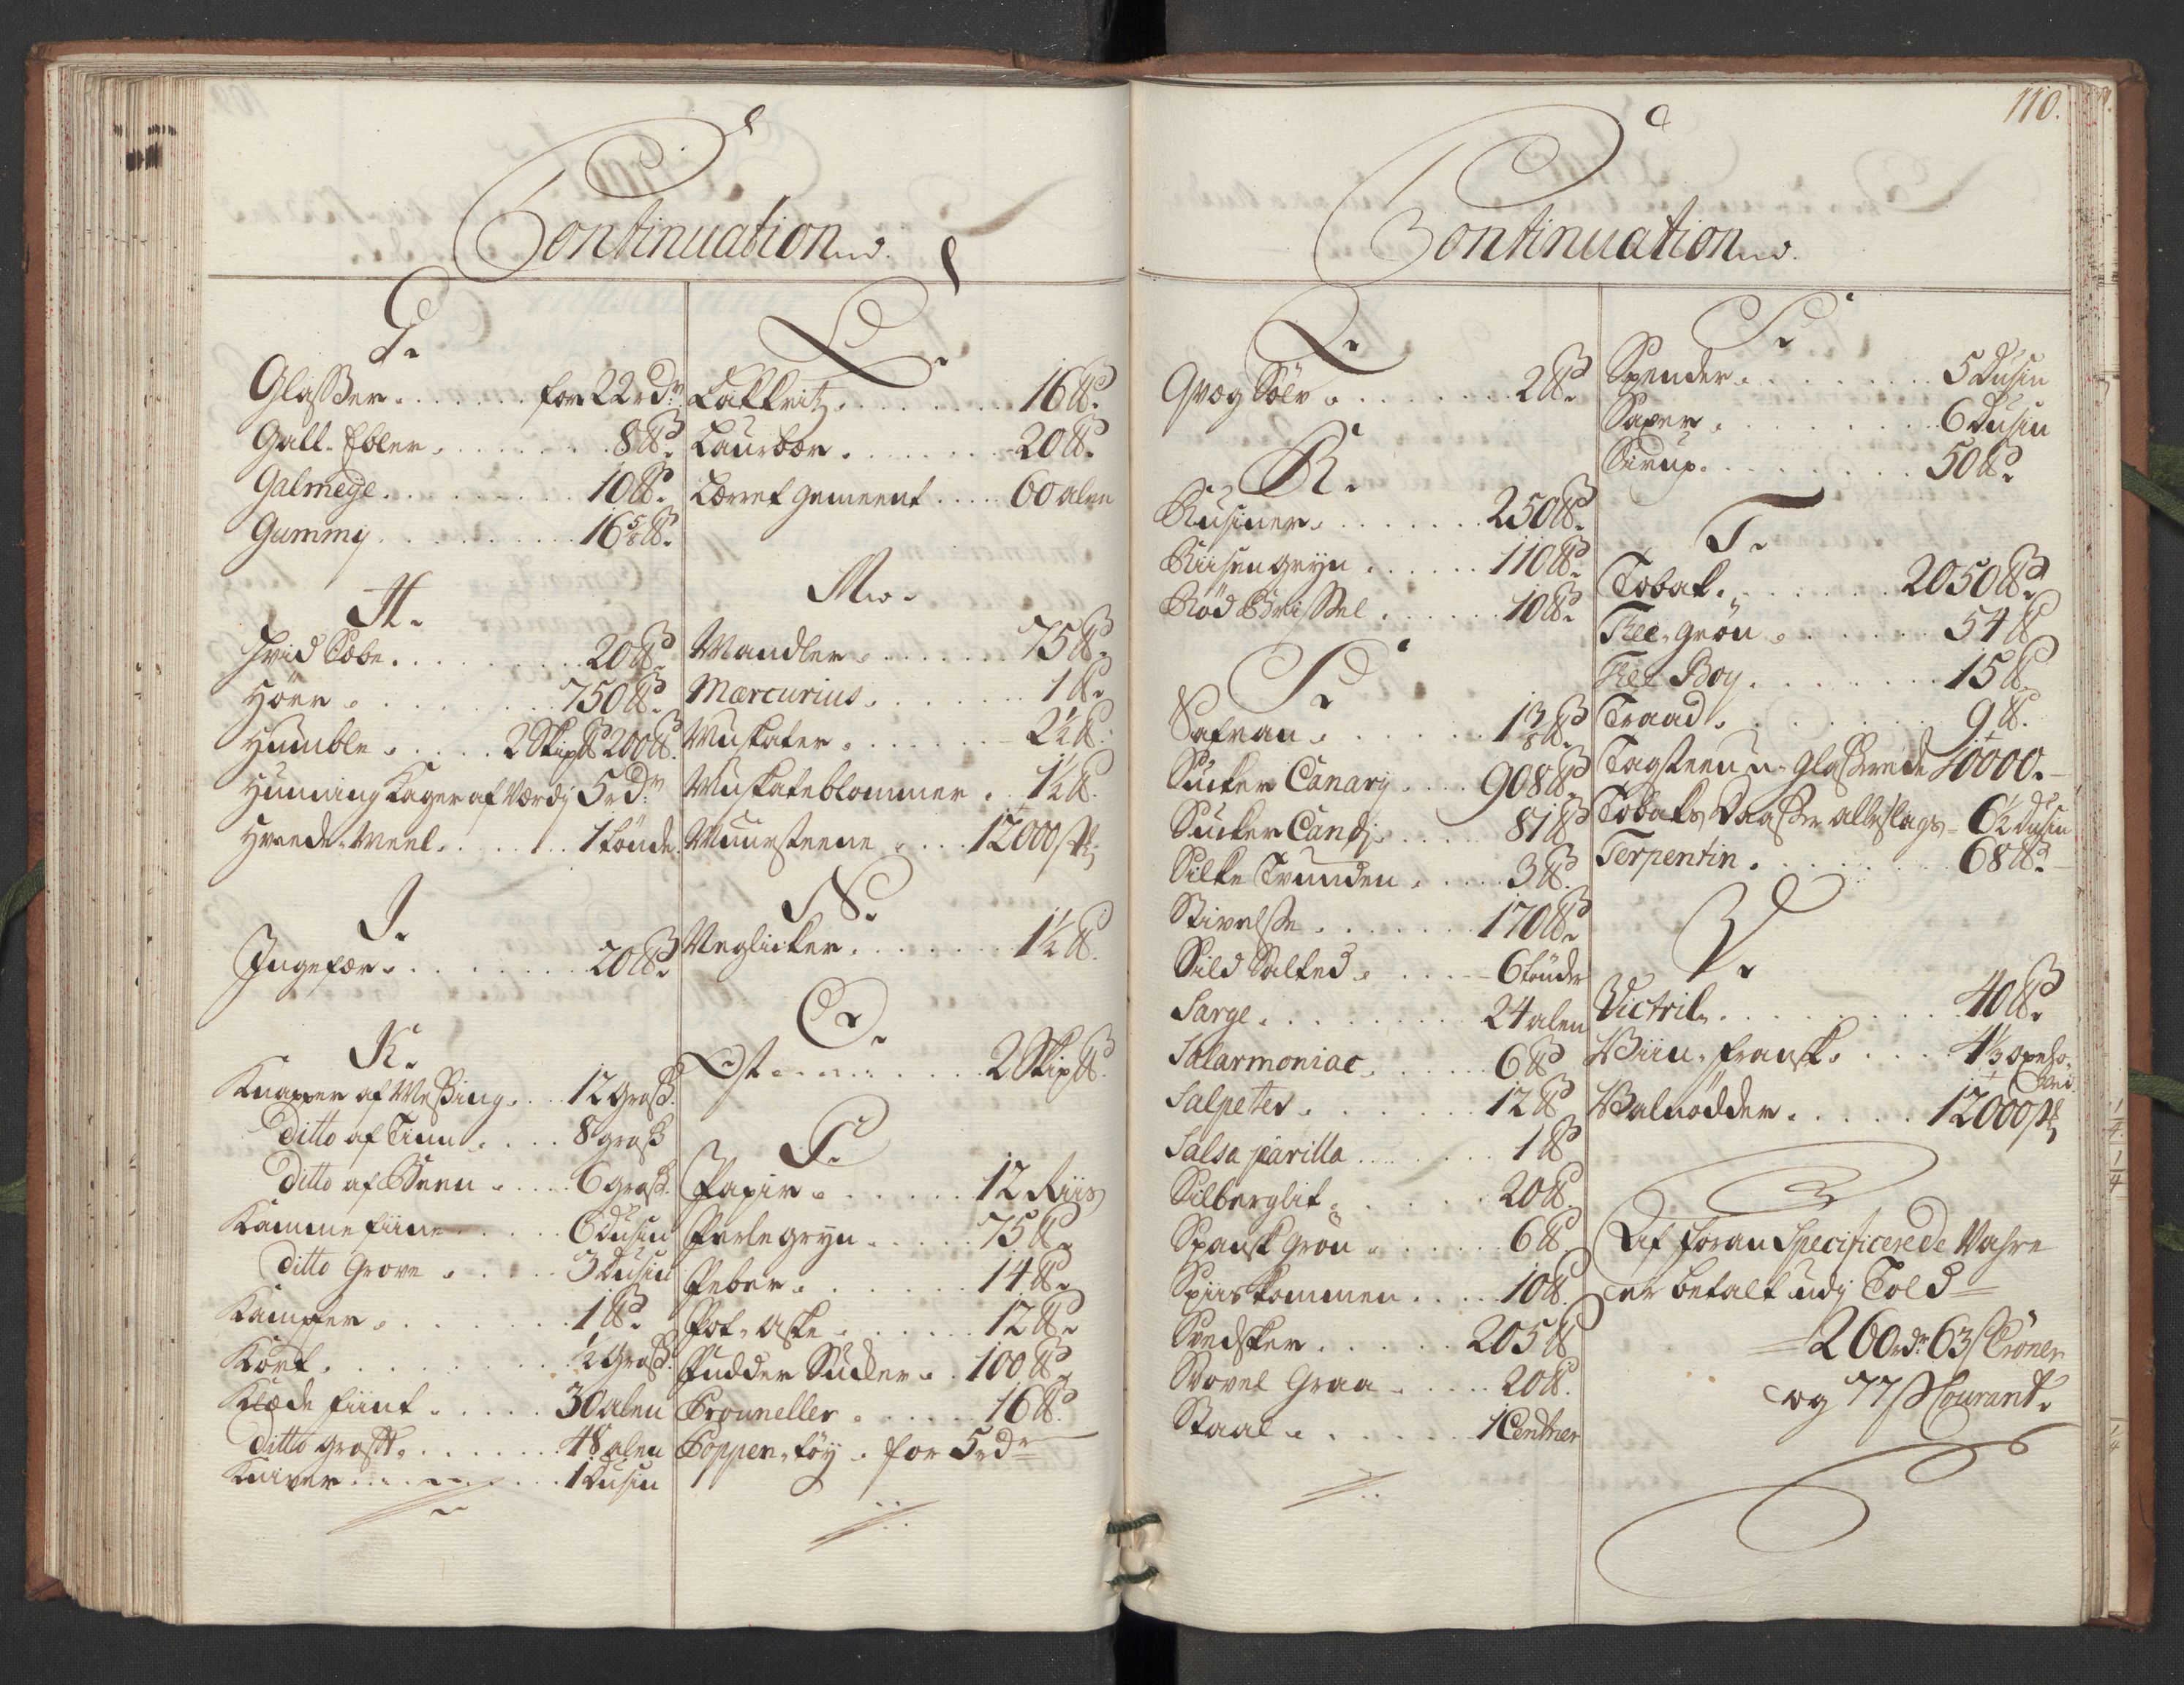 Continuation
G.
Glasser . . . . . . for 22 rdr
Gall-Ebler . . . . . . 8 ℔.
Galmeye . . . . . . 10 ℔.
Gummy . . . . . . 16 5/8 ℔.
H.
Hvid Læbe . . . . . . 20 ℔.
Hörr . . . . . . 750 ℔.
Humble . . . . 2 Skip℔ 200 ℔.
Hunning Kager af Værdj 5 rdr
Hvede-Meel . . . . . 1 tönde.
I.
Ingefær . . . . . . 20 ℔.
K.
Knapper af Messing . . . 12 gross.
Ditto af Tinn . . . . 8 gross
Ditto af Been . . . . 6 gross.
Kamme fiine . . . . . 6 dusin
Ditto Grove . . . . 3 Dusin
Kampfer . . . . . . 1 ℔.
Kort . . . . . . ½ gross.
Klæde fiint . . . . . 30 alen
Ditto groft . . . . . . 48 alen
Kniver . . . . . . 1 Dusin
L.
Lakkritz . . . . . . 16 ℔.
Laurbær . . . . . . 20 ℔.
Lærret gemeent . . . . 60 alen
M.
Mandler . . . . . . 75 ℔.
Mærcurius . . . . . . 1 ℔.
Muskater . . . . . . 2½ ℔.
Muskateblommer . . 1½ ℔.
Muursteene . . . . 12000 st
N.
Neglicker . . . . . . 1½ ℔.
O.
Ost . . . . . . 2 Skip℔.
P.
Papir . . . . . . 12 Riis
Perlegryn . . . . . 75 ℔.
Peber . . . . . . 14 ℔.
Pot-Aske . . . . . . 12 ℔.
Pudder Sucker . . 100 ℔.
Prouneller . . . . . 16 ℔.
Poppen-töy . for 5 rdr
110.
Continuation
Q.
Qvæg Sölv . . . . . . 2 ℔.
R.
Rusiner . . . . . . 250 ℔.
Riisengryn . . . . . . 110 ℔.
Röd Brissel . . . . . 10 ℔.
S.
Safran . . . . . . 1 3/8 ℔.
Sucker Canary . . . . 908 ℔.
Sucker Candj . . . . . 81 ℔
Silke Trunden . . . . . 3 ℔.
Stivelsse . . . . . . 170 ℔.
Sild Salted . . . . . 6 tönder
Sarge . . . . . . 24 alen
Salarmoniac . . . . . 6 ℔
Salpeter . . . . . . 12 ℔
Salsa parilla . . . . . . 1 ℔
Silberglit . . . . . . 20 ℔.
Spansk grön . . . . . 6 ℔.
Spiiskommen . . . . 10 ℔.
Svedsker . . . . . . 205 ℔
Svovel Graa . . . . . 20 ℔.
Staal . . . . . . 1 Centner
S.
Spender . . . . . . 5 Dusin
Saxer . . . . . . 6 Dusin
Sirup . . . . . . 50 ℔.
T.
Tobak . . . . . . 2050 ℔.
Thee-grön . . . . . . 54 ℔
Thee Boy . . . . . . 15 ℔
Traad . . . . . . 9 ℔.
Tagsteen u-glasserede 10000.
Tobaks Daasser alleslags - 6½ dusin
Terpentin . . . . . . 68 ℔.
V.
Victril . . . . . . 40 ℔.
Viin-fransk . . . . 4⅓ oxeho-
ved
Valnödder . . . . . 12000 st
Af foran Specificerede Vahre
er betalt udj Told
260 rdr 63 s Croner
og 77 s Courant.